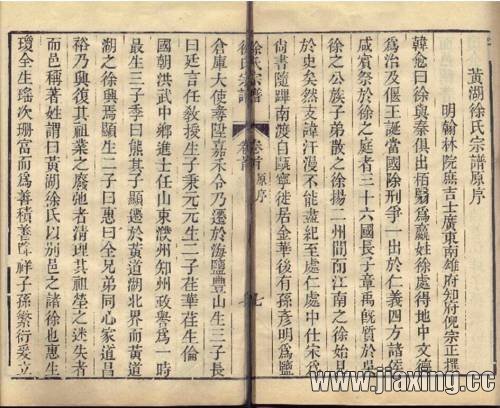 黃湖徐氏宗譜原序
明翰林院庶吉士廣東南雄府知府倪宗正撰
韓愈曰徐與秦俱出栢翳為嬴姓徐處得地中文德
為治及偃王誕當國除刑爭一出於仁義四方諸侯
咸賓祭於徐之庭者三十六國長子章禹旣質於吳
徐之公族子弟散之徐揚二州間而江南之徐始見
於史矣然支諱汗漫不能盡紀至處仁處中仕宋為
尚書隨蹕南渡自甌寧徙居金華後有孫彥明為鹽
徐氏宗譜
卷首
原序
七
倉庫大使尋陞嘉禾令乃遷於海鹽豐山生三子長
曰廷言任敎授生子秉元元生二子荏華荏生倫
國朝洪武中鄉進士任山東濮州知州政譽為一時
最生三子季曰熊其子顯遷於黃道湖北界而黃道
湖之徐興焉顯生二子曰惠曰全兄弟同心家道昌
裕乃興復其祖業之廢弛者清理其祖塋之迷失者
而邑稱著姓謂曰黃湖徐氏以别邑之諸徐也惠生
瓊全生瑤次珊富而為善積善降祥子孫繁衍爰立
www.jiaxing.cc